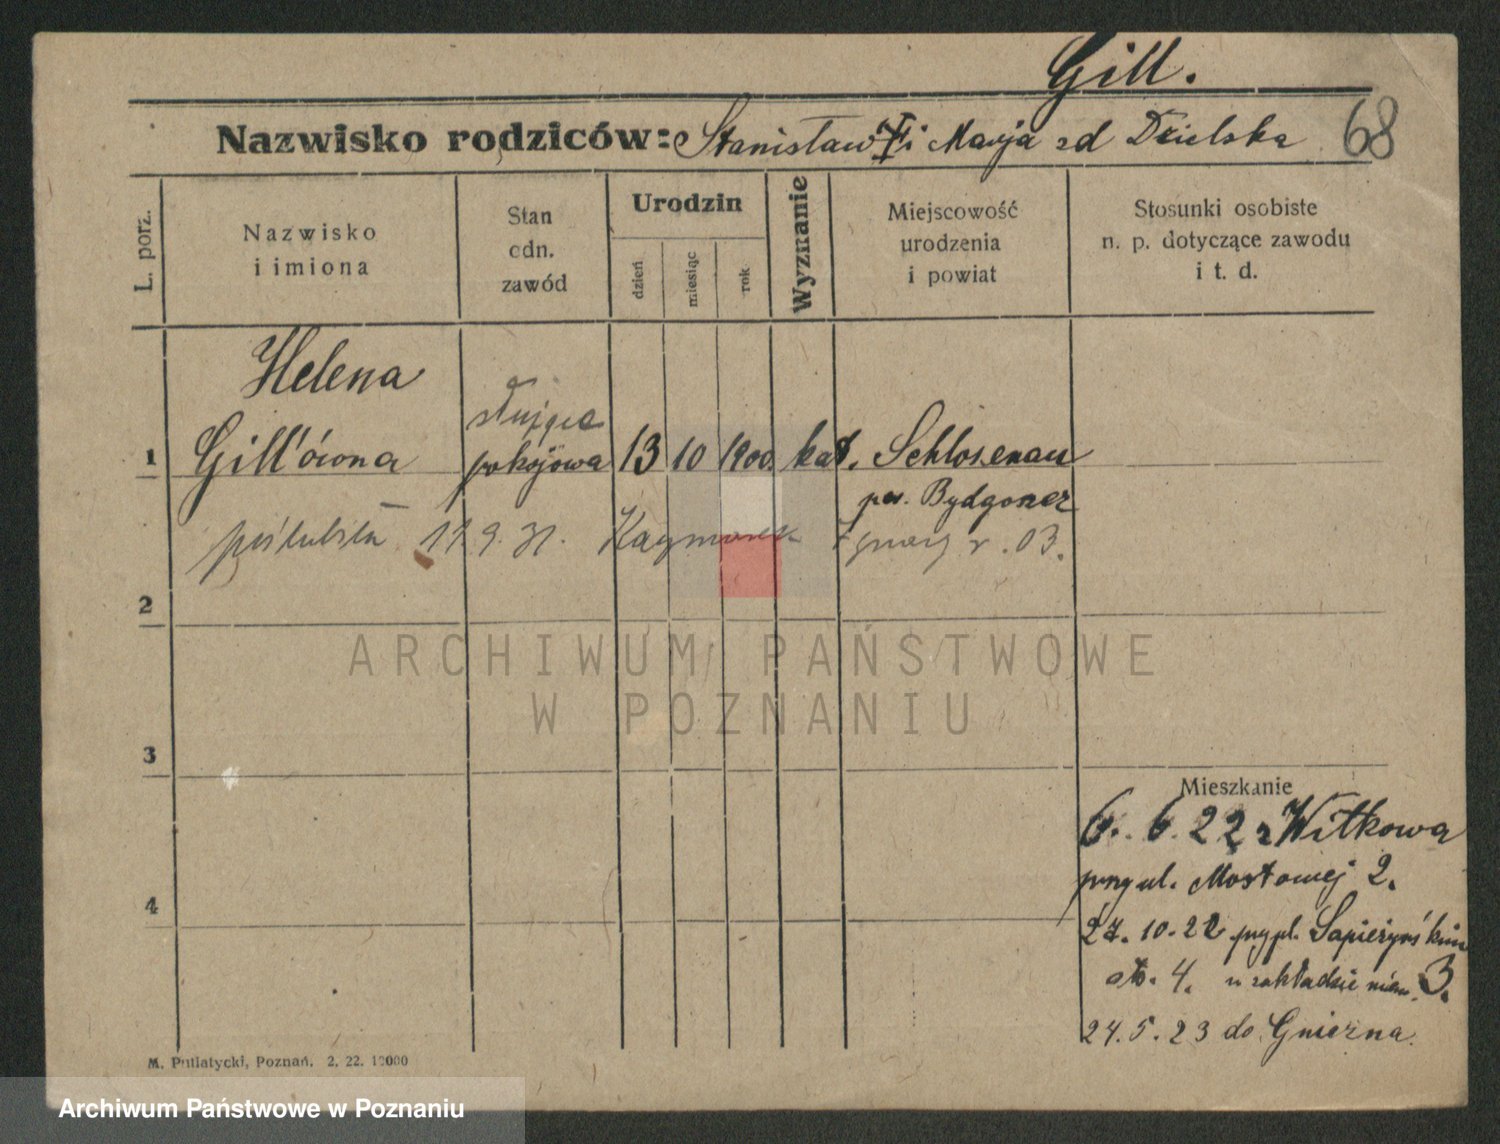 Gill.
68
Nazwisko rodziców: Stanisław i Marja zd Dzielska
L. porz.
Nazwisko
i imiona
Stan
odn.
zawód
Urodzin
dzień
miesiąc
rok
Wyznanie
Miejscowość
urodzenia
i powiat
Stosunki osobiste
n. p. dotyczące zawodu
i t. d.
Helena
służąca
1 Gill'ówna pokojowa 13 10 1900 kat. Schlosenau
pow. Bydgoszcz
poślubiła 11 9. 31. Kaczmarek Ignacy r. 03.
2
3
4
Mieszkanie
6. 6. 22 z Witkowa
przy ul. Mostowej 2.
27. 10. 22 przy pl. Sapieżyńskim
3.
24. 5. 23 do Gniezna.
M. Putiatycki, Poznań. 2. 22. 12000
ARCHIWUM PAŃSTWOWE
W POZNANIU
Archiwum Państwowe w Poznaniu